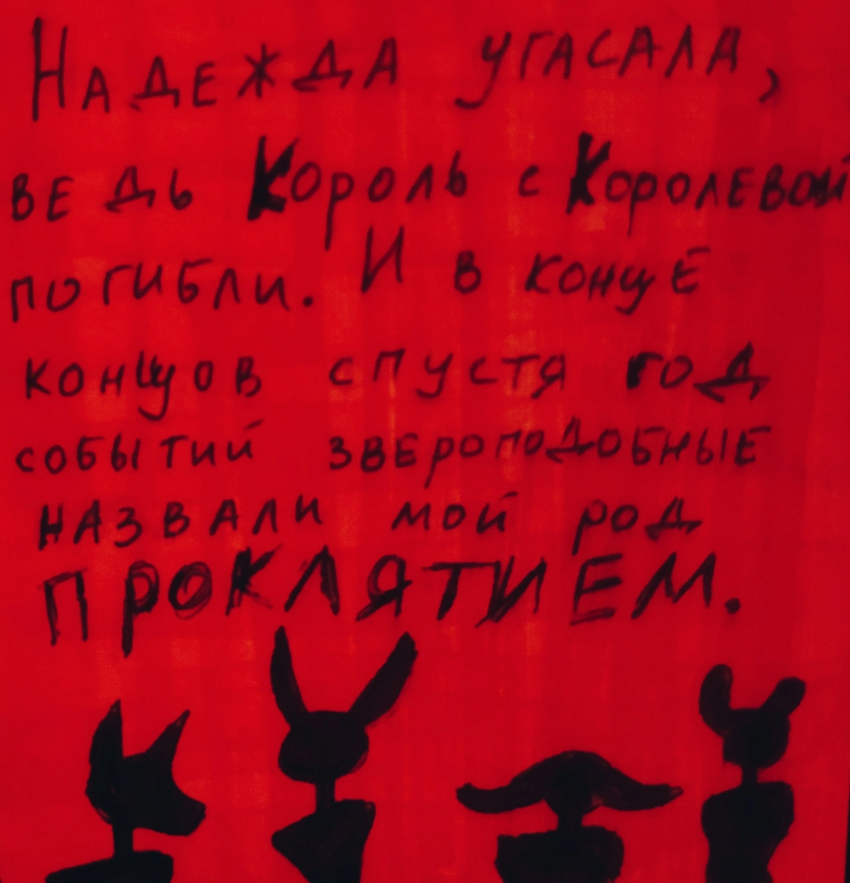 Надежда угасала,
ведь Король с Королевой
погибли. И в конце
концов спустя год
событий звероподобные
назвали мой род
ПРОКЛЯТИЕМ.